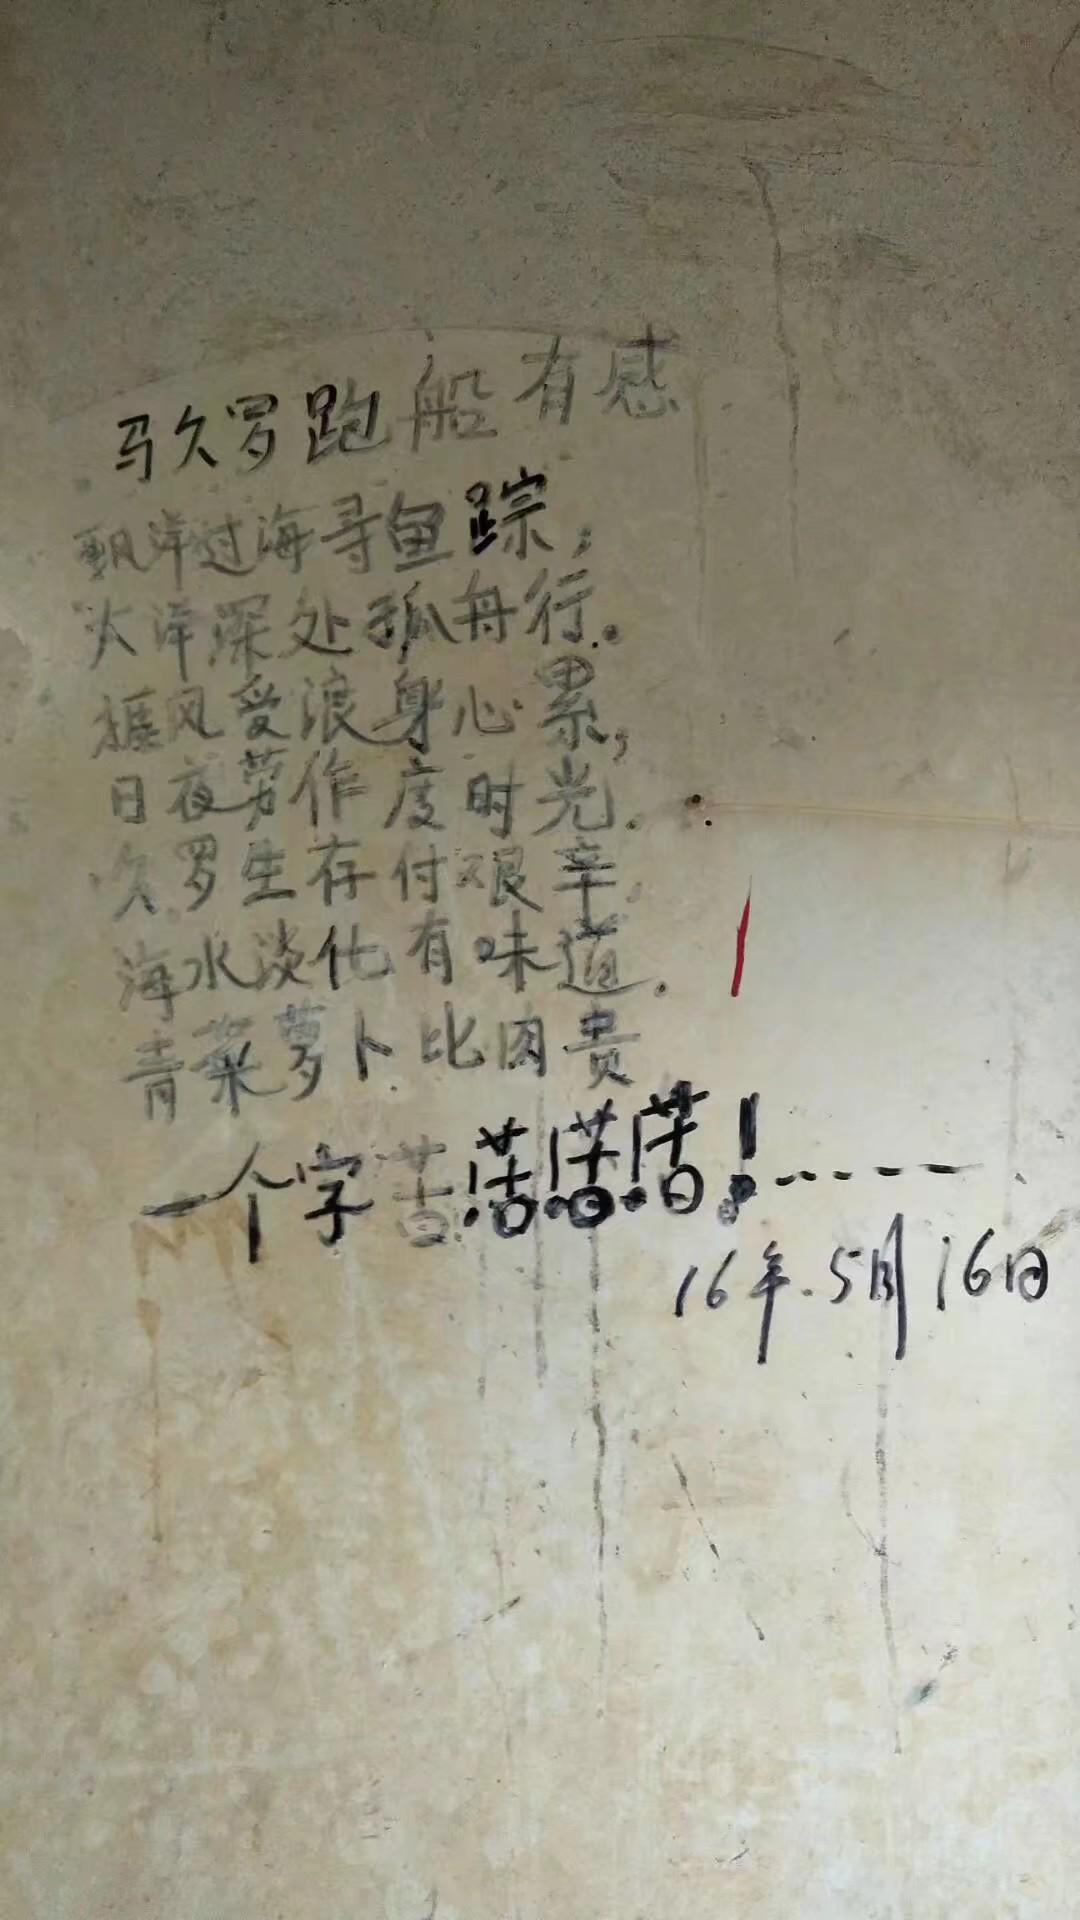 马久罗跑船有感
飘洋过海寻鱼踪,
大洋深处孤舟行.
摧风爱浪身心累,
日夜劳作度时光.
久罗生存付艰辛,
海水淡化有味道.
青菜萝卜比肉贵
一个字苦!苦!苦!苦!-----
16年.5月16日